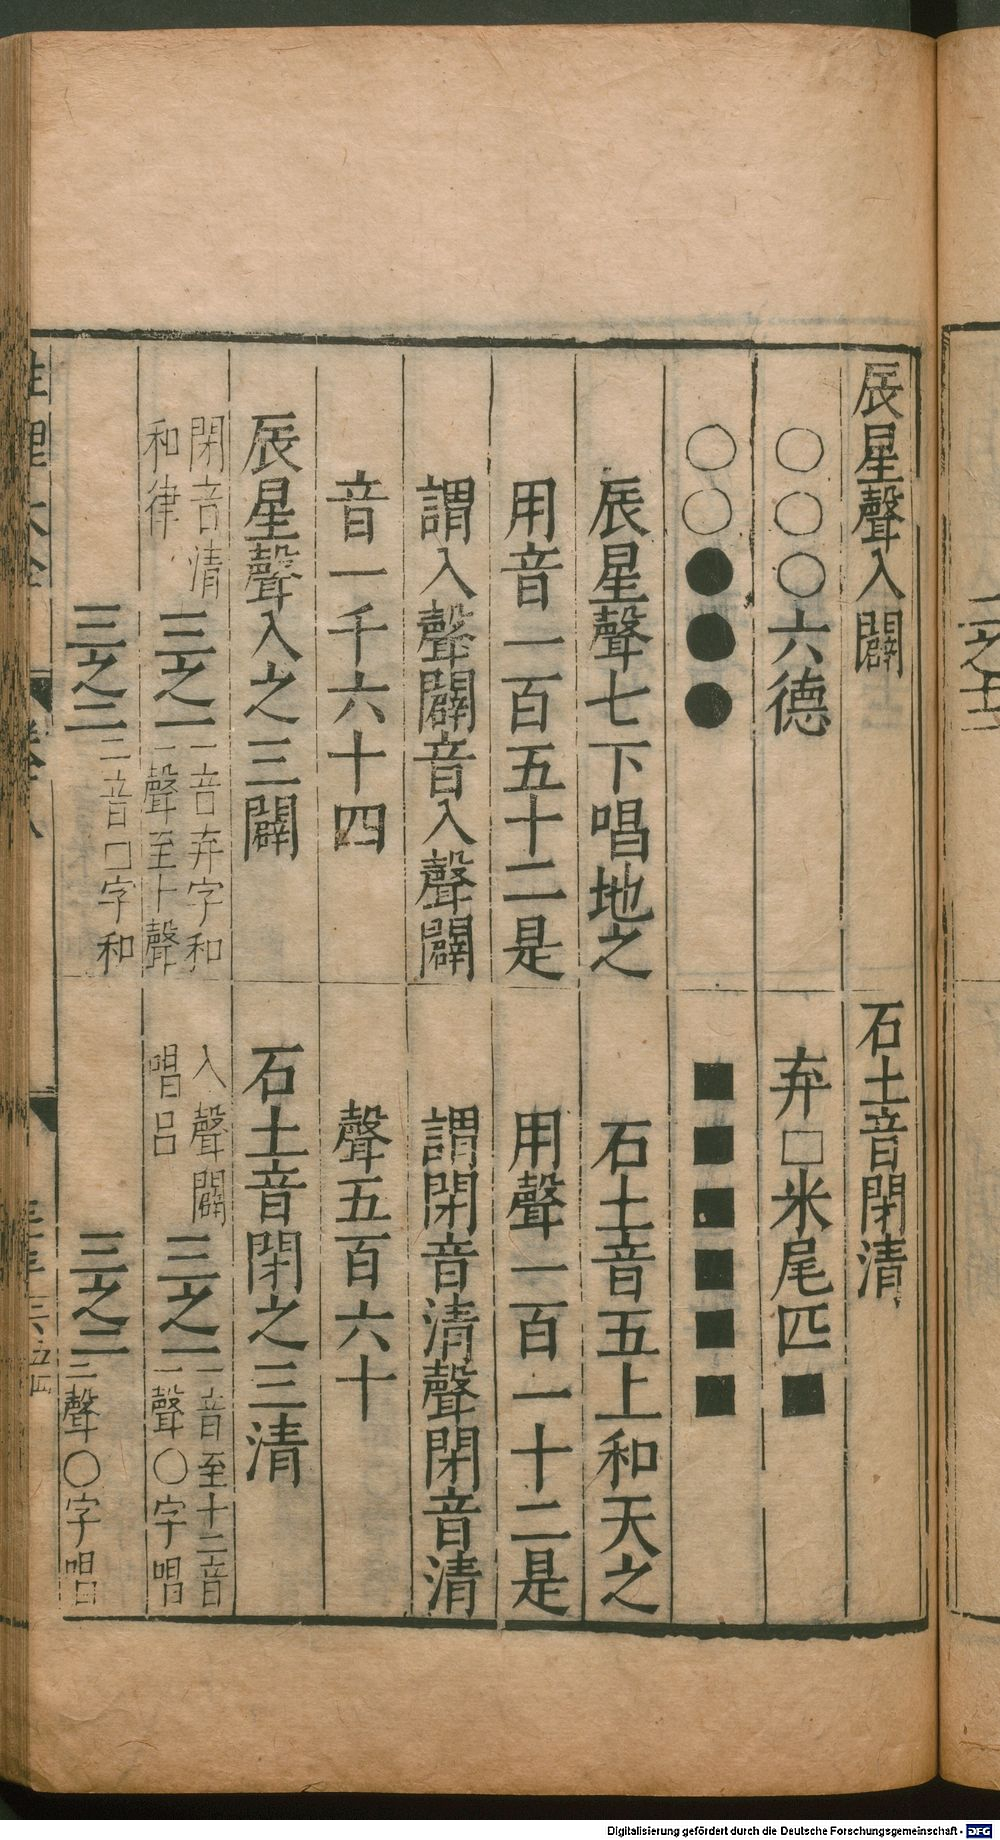 辰星聲入闢
石土音閉清
○○○六德
弃□米尾匹■
○○●●●
■■■■■■
辰星聲七下唱地之
石土音五上和天之
用音一百五十二是
用聲一百一十二是
謂入聲闢音入聲闢
謂閉音清聲閉音清
音一千六十四
聲五百六十
辰星聲入之三闢
石土音閉之三清
閉音清
和律
三之一
一音弃字和
一聲至十聲
入聲闢
唱呂
三之一
一音至十二音
一聲○字唱
三之二
二音□字和
三之二
二聲○字唱
性理大全
卷八
Digitalisierung gefördert durch die Deutsche Forschungsgemeinschaft - DFG